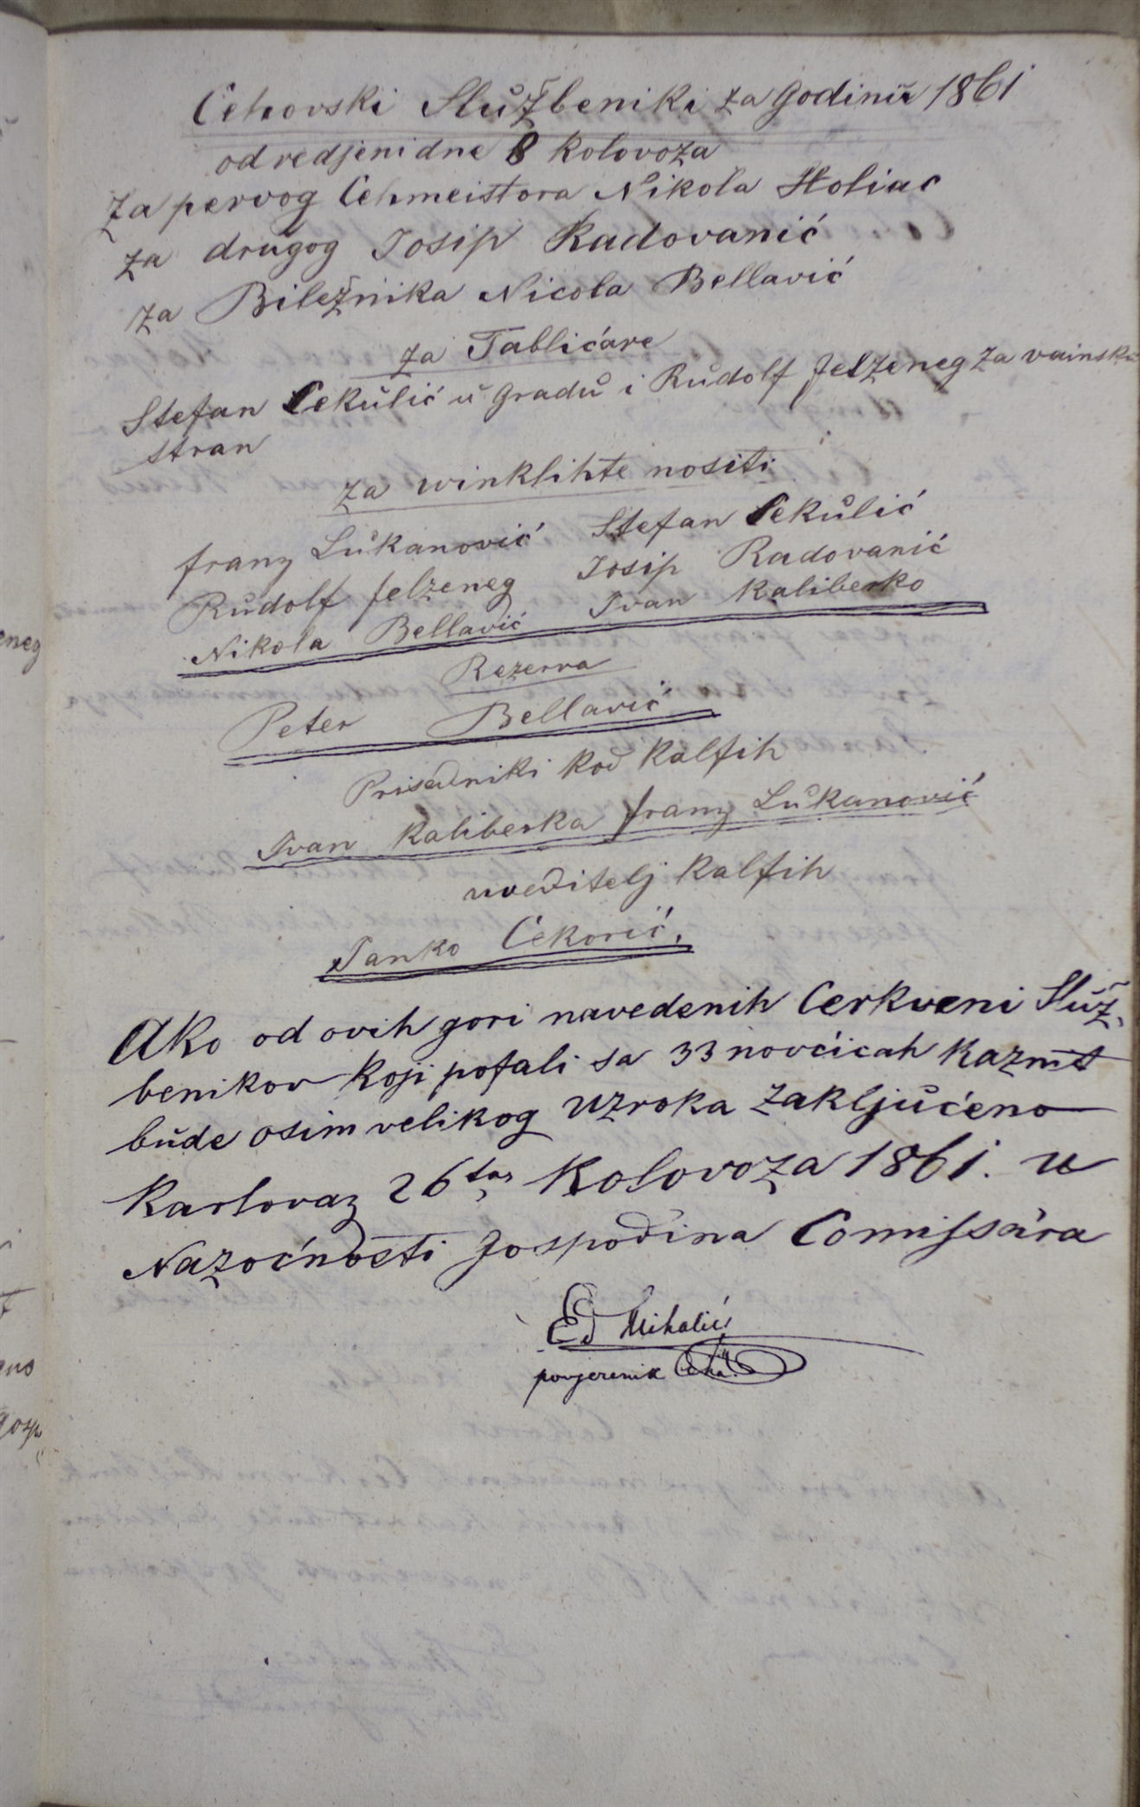 Cehovski Službeniki za Godinu 1861
odredjeni dne 8 Kolovoza
Za pervog Cehmeistora Nikola Holiac
za drugog Josip Radovanić
za Biležnika Nicola Bellavić
za Tablićare
Stefan Cekulić u Gradu i Rudolf Jelzeneg za vainsku
stran
za winklihte nositi
franz Lukanović Stefan Cekulić
Rudolf Jelzeneg Josip Radovanić
Nikola Bellavić Ivan Kaliberko
Rezerva
Peter Bellavić
Prisedniki kod Kalfih
Ivan Kaliberka franz Lukanović
uveditelj Kalfih
Janko Cekorić.
Ako od ovih gori navedenih Cerkveni Služ-
benikov Koji pofali sa 33 novćicah Kaznit
bude osim velikog uzroka zaključeno
Karlovaz 26tog Kolovoza 1861. u
Nazoćnosti Gospodina Comissára
Ed Mihalić
povjerenik Ceha
eneg
eno
gosp